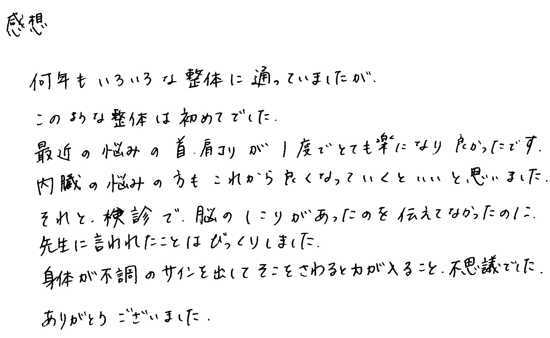 感想
何年もいろいろな整体に通っていましたが、
このような整体は初めてでした。
最近の悩みの首、肩こりが1度でとても楽になり良かったです。
内臓の悩みの方もこれから良くなっていくといいと思いました。
それと、検診で、脳のしこりがあったのを伝えてなかったのに、
先生に言われたことはびっくりしました。
身体が不調のサインを出してそこをさわると力が入ること、不思議でした。
ありがとうございました。